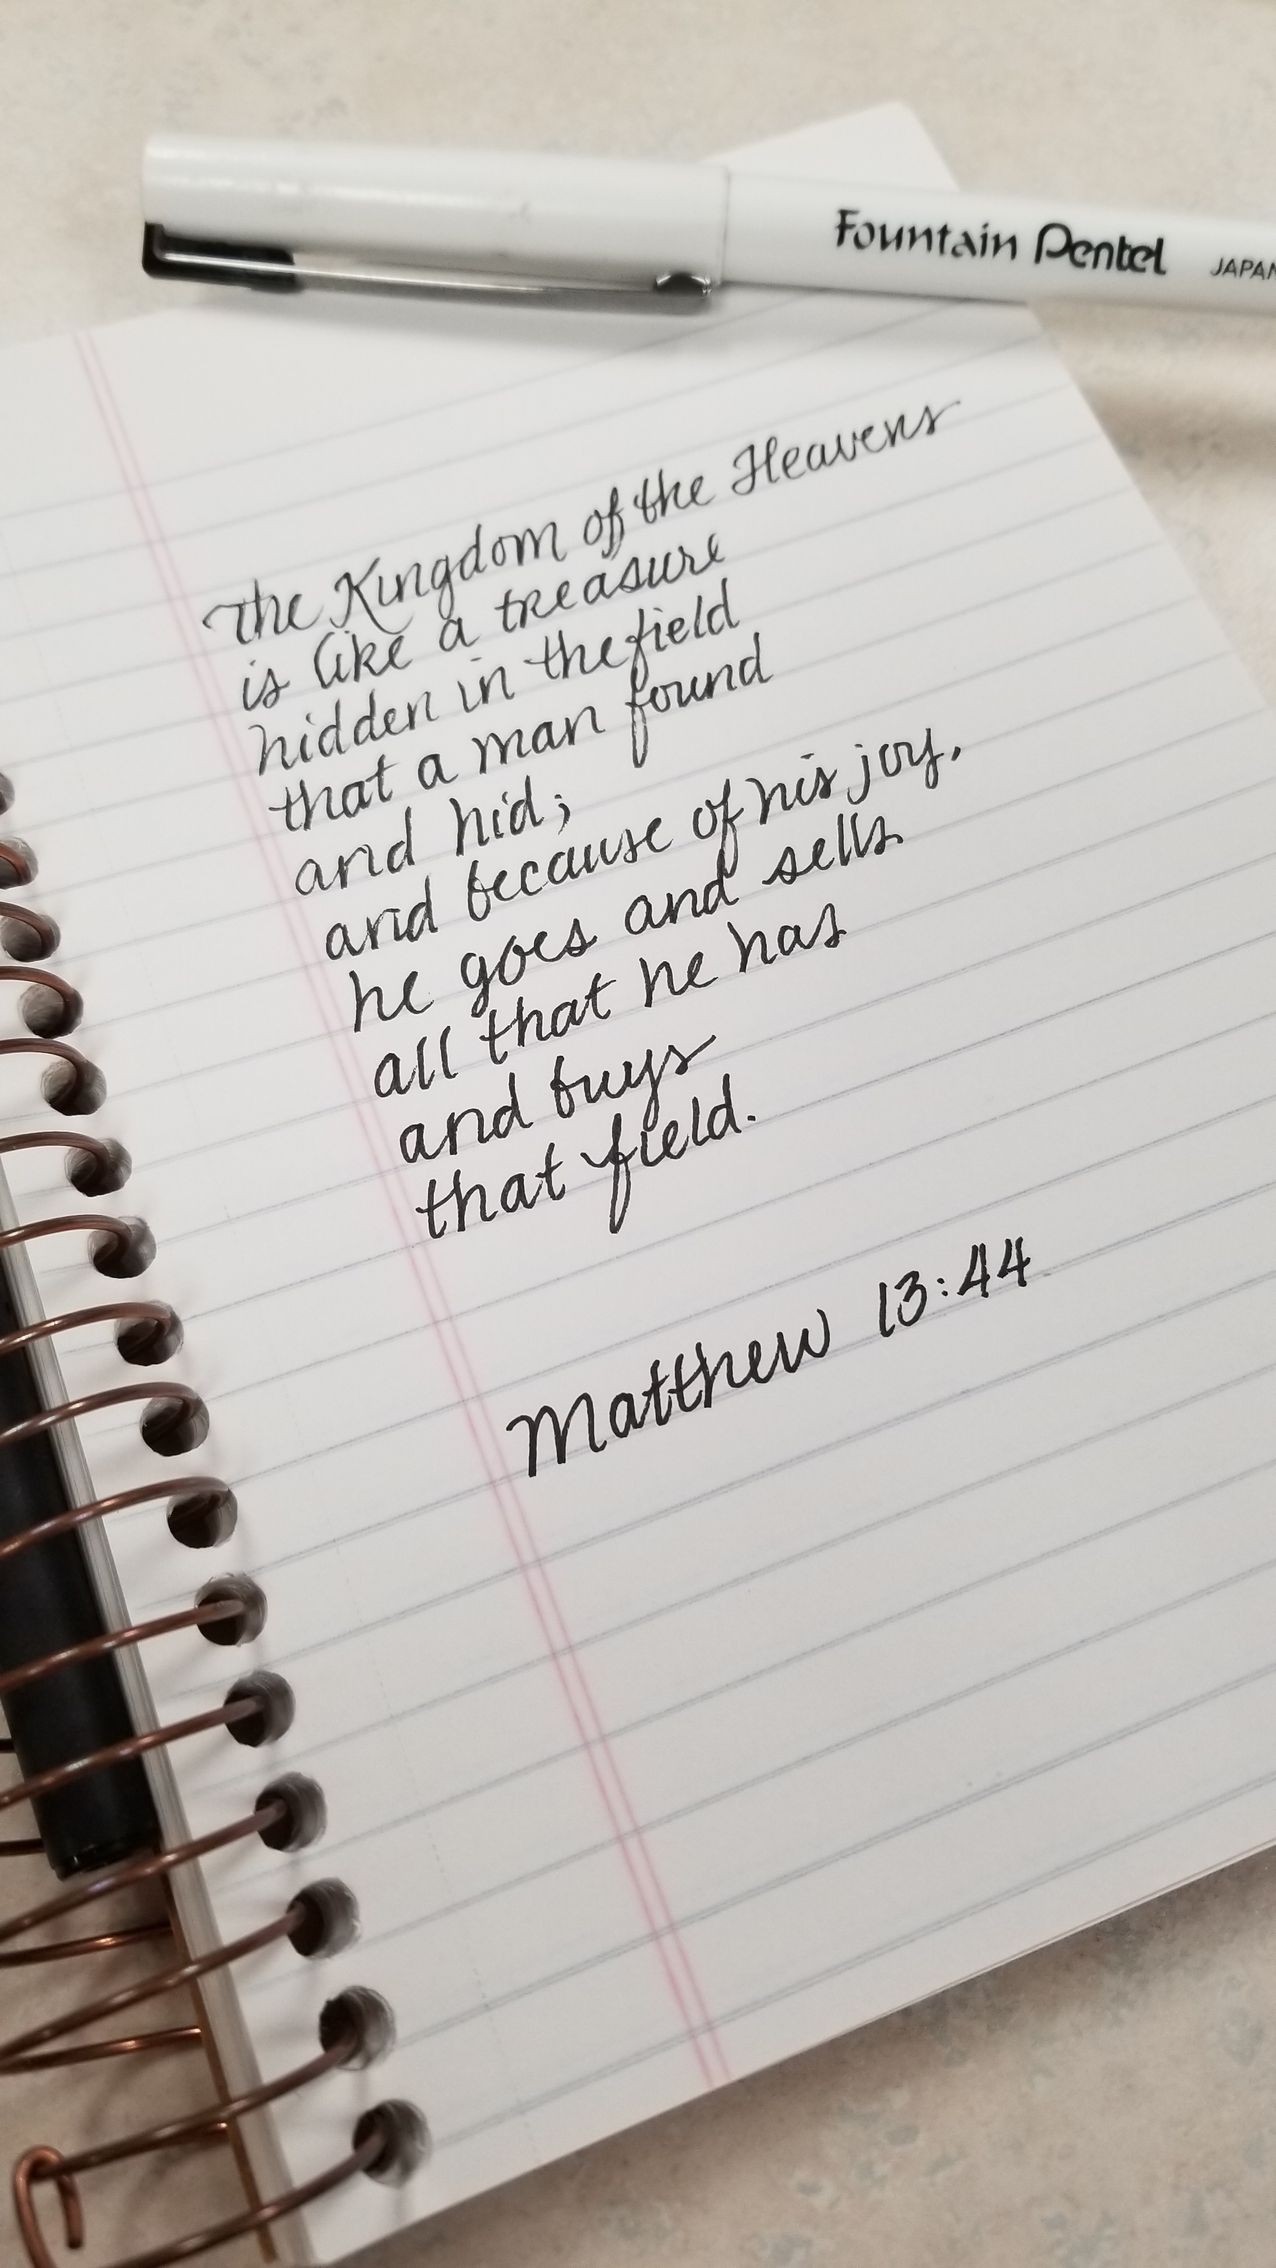 Fountain Pentel JAPAN
The Kingdom of the Heavens
is like a treasure
hidden in the field
that a man found
and hid;
and because of his joy,
he goes and sells
all that he has
and buys
that field.
Matthew 13:44